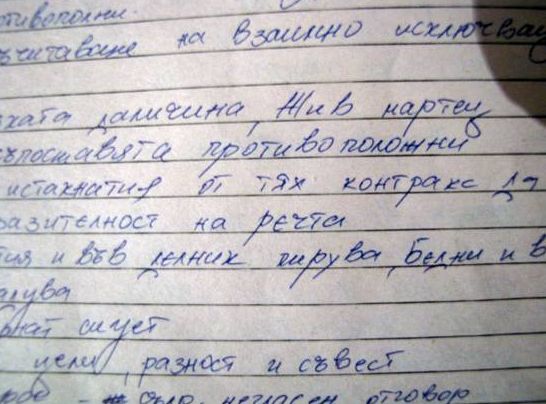 отивополни.
ъчитаване на взаимно изключващ
ухата даличина, Жив мартец
съпоставята противоположни
истакнатия от тях контракс
разителност на речта
тия и във делник пирува, бедни и в
адува
рнат силует
цели, разност и съвест
- съло, негласен отговор